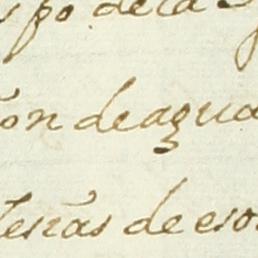 po de la
ón de agua
señas de eso